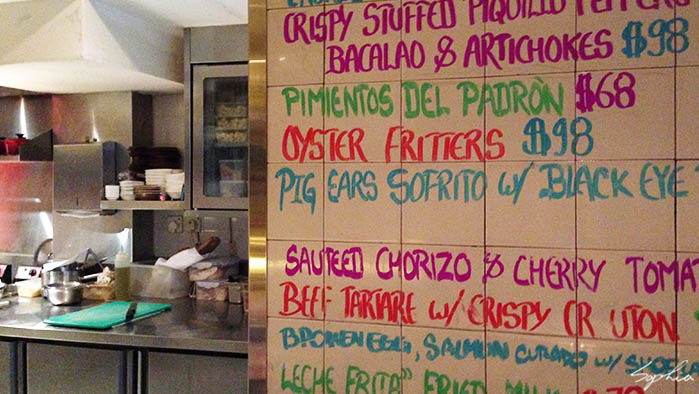 CRISPY STUFFED PIQUILLO PEPPERS
BACALAO & ARTICHOKES $98
PIMIENTOS DEL PADRÒN $68
OYSTER FRITTERS $98
PIG EARS SOFRITO W/ BLACK EYE
SAUTEED CHORIZO & CHERRY TOMAT
BEEF TARTARE W/ CRISPY CR UTON
BROKEN EGG, SALMON CURADO W/
LECHE FRITA" FRIED MILK
Sophia